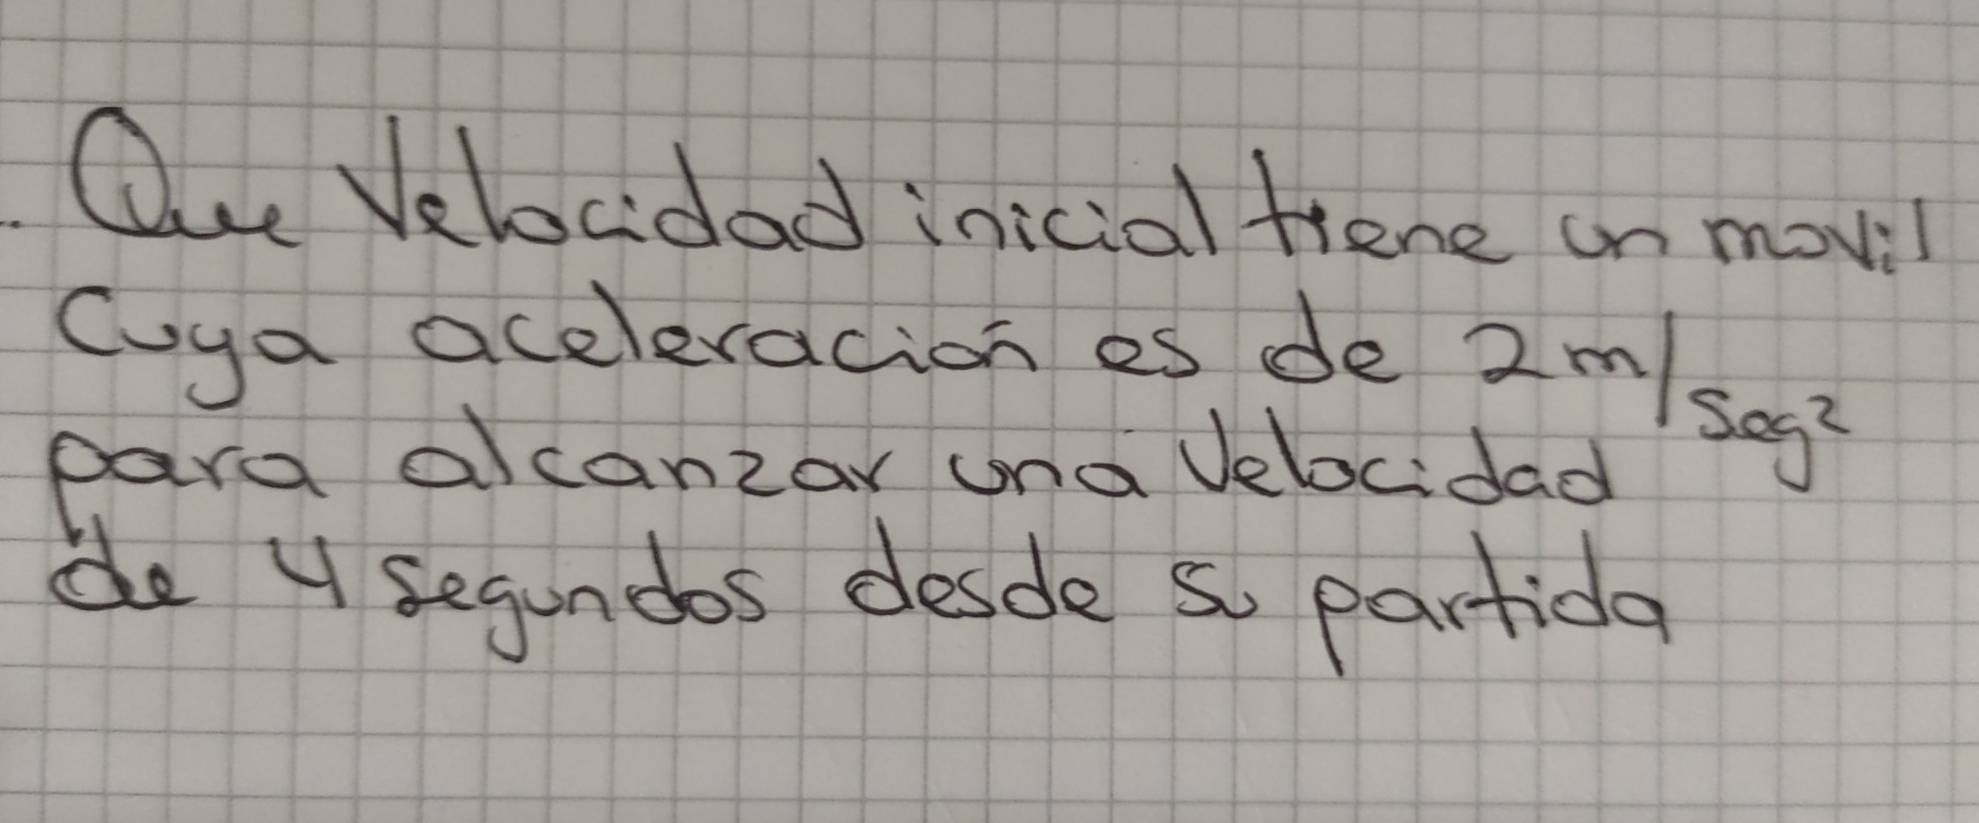 Que Velocidad inicial tiene un movil
Cuya aceleración es de 2m/seg²
para alcanzar una Velocidad
de 4 segundos desde su partida